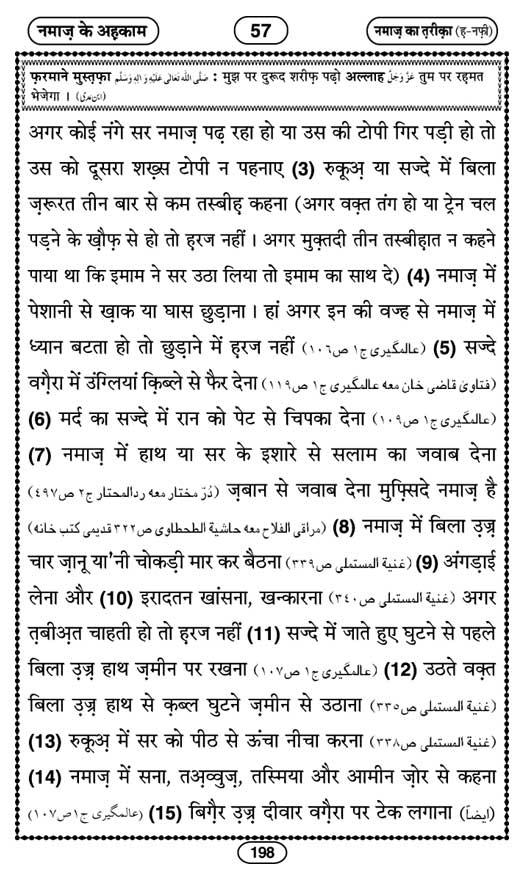 नमाज़ के अहकाम
57
नमाज़ का तरीक़ा (ह-नफ़ी)
फ़रमाने मुस्तफ़ा صَلَّى اللهُ تَعَالٰى عَلَيْهِ وَاٰلِهٖ وَسَلَّم : मुझ पर दुरूद शरीफ़ पढ़ो अल्लाह عَزَّ وَجَلَّ तुम पर रह़मत
भेजेगा । (ابن عدی)
अगर कोई नंगे सर नमाज़ पढ़ रहा हो या उस की टोपी गिर पड़ी हो तो
उस को दूसरा शख़्स टोपी न पहनाए (3) रुकूअ़ या सज्दे में बिला
ज़रूरत तीन बार से कम तस्बीह़ कहना (अगर वक़्त तंग हो या ट्रेन चल
पड़ने के ख़ौफ़ से हो तो ह़रज नहीं । अगर मुक़्तदी तीन तस्बीह़ात न कहने
पाया था कि इमाम ने सर उठा लिया तो इमाम का साथ दे) (4) नमाज़ में
पेशानी से ख़ाक या घास छुड़ाना । हां अगर इन की वज्ह से नमाज़ में
ध्यान बटता हो तो छुड़ाने में ह़रज नहीं (عالمگیری ج١ ص١٠٦) (5) सज्दे
वग़ैरा में उंग्लियां क़िब्ले से फैर देना (فتاویٰ قاضی خان معه عالمگیری ج١ ص١١٩)
(6) मर्द का सज्दे में रान को पेट से चिपका देना (عالمگیری ج١ ص١٠٩)
(7) नमाज़ में हाथ या सर के इशारे से सलाम का जवाब देना
(دُرِّ مختار معه ردالمحتار ج٢ ص٤٩٧) ज़बान से जवाब देना मुफ़्सिदे नमाज़ है
(مراقی الفلاح معه حاشیة الطحطاوی ص٣٢٢ قدیمی کتب خانه) (8) नमाज़ में बिला उ़ज़्र
चार ज़ानू या'नी चोकड़ी मार कर बैठना (غنیة المستملی ص٣٣٩) (9) अंगड़ाई
लेना और (10) इरादतन खांसना, खन्कारना (غنیة المستملی ص٣٤٠) अगर
त़बीअ़त चाहती हो तो ह़रज नहीं (11) सज्दे में जाते हुए घुटने से पहले
बिला उ़ज़्र हाथ ज़मीन पर रखना (عالمگیری ج١ ص١٠٧) (12) उठते वक़्त
बिला उ़ज़्र हाथ से क़ब्ल घुटने ज़मीन से उठाना (غنیة المستملی ص٣٣٥)
(13) रुकूअ़ में सर को पीठ से ऊंचा नीचा करना (غنیة المستملی ص٣٣٨)
(14) नमाज़ में सना, तअ़व्वुज़, तस्मिया और आमीन ज़ोर से कहना
(عالمگیری ج١ص١٠٧) (15) बिग़ैर उ़ज़्र दीवार वग़ैरा पर टेक लगाना (ایضاً)
198